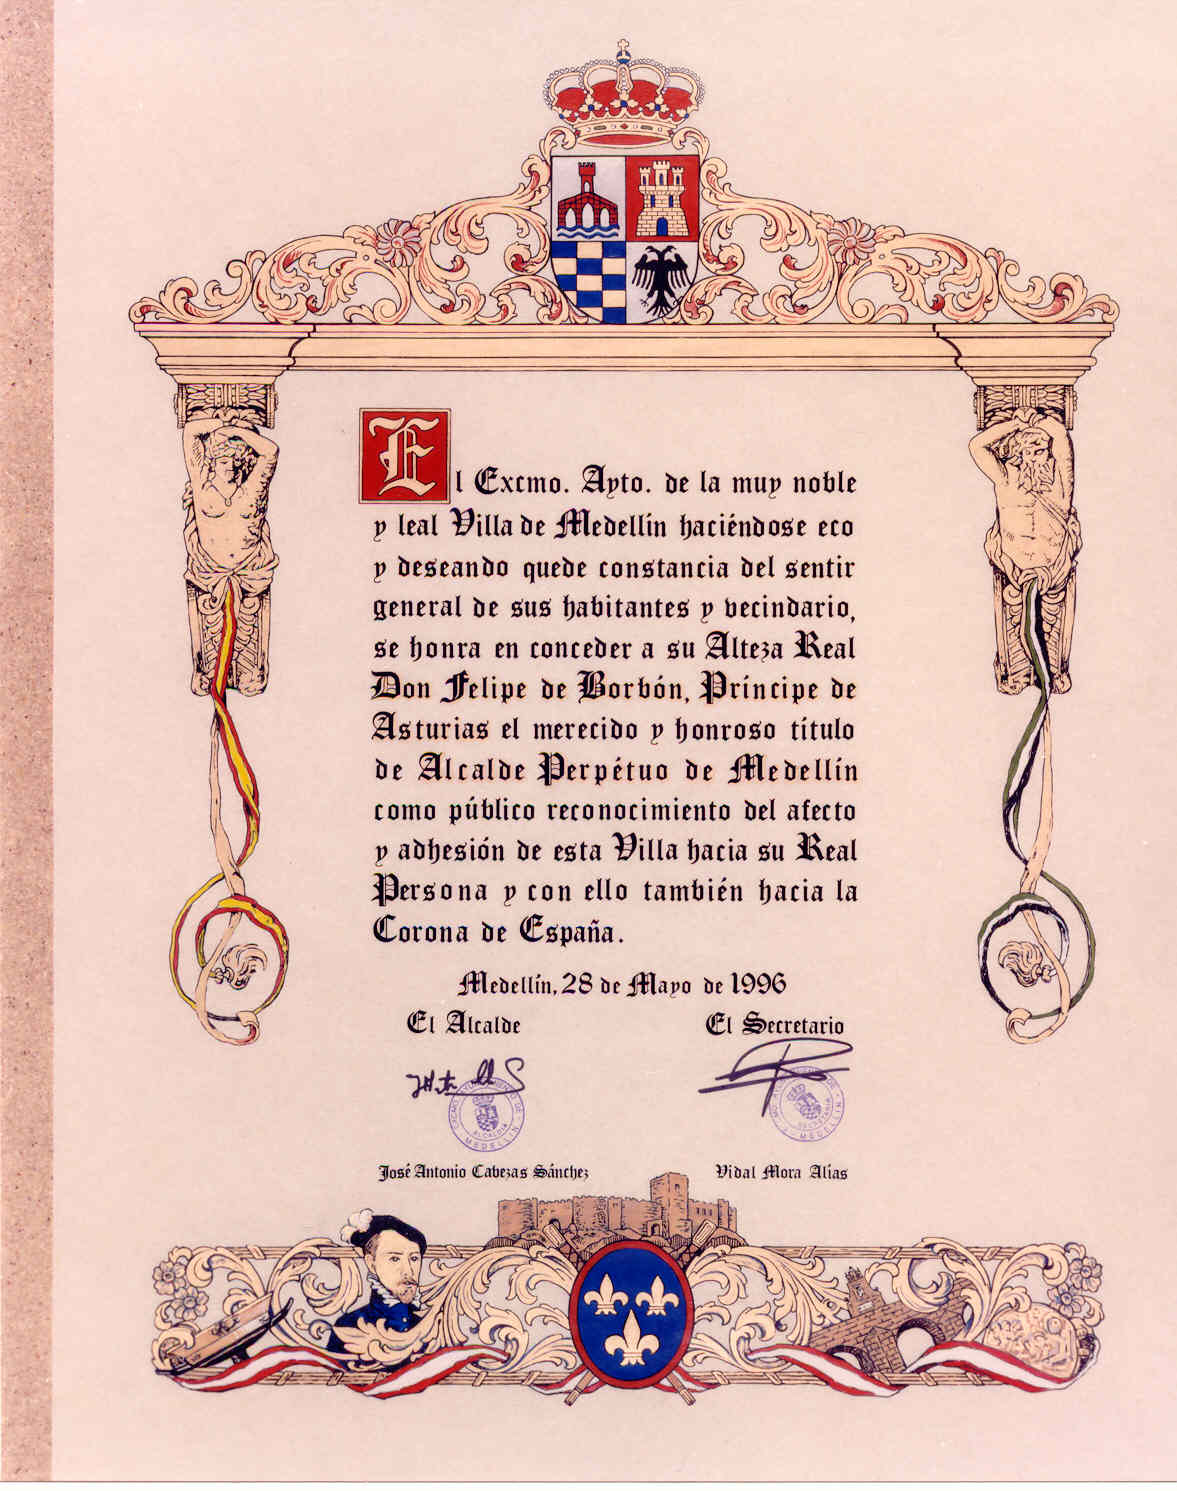 El Excmo. Ayto. de la muy noble
y leal Villa de Medellín haciéndose eco
y deseando quede constancia del sentir
general de sus habitantes y vecindario,
se honra en conceder a su Alteza Real
Don Felipe de Borbón, Príncipe de
Asturias el merecido y honroso título
de Alcalde Perpétuo de Medellín
como público reconocimiento del afecto
y adhesión de esta Villa hacia su Real
Persona y con ello también hacia la
Corona de España.
Medellín, 28 de Mayo de 1996
El Alcalde El Secretario
EXCMO. AYUNTAMIENTO DE
ALCALDIA
MEDELLIN
SECRETARIA
MEDELLIN
José Antonio Cabezas Sánchez Vidal Mora Alías